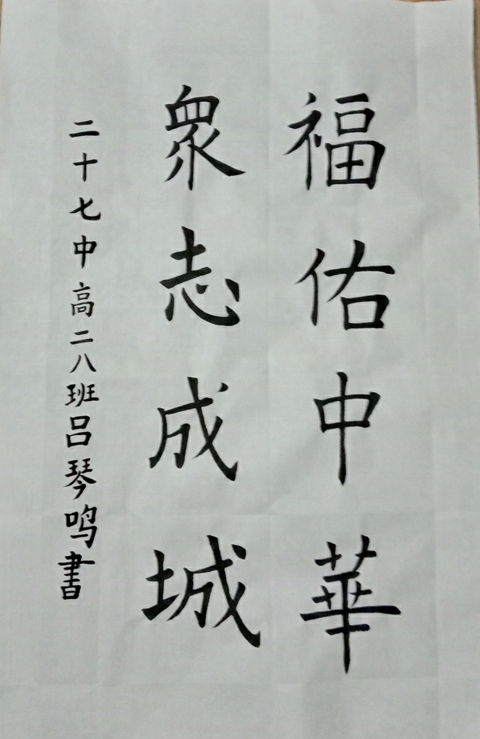 福佑中華
眾志成城
二十七中高二八班吕琴鸣書